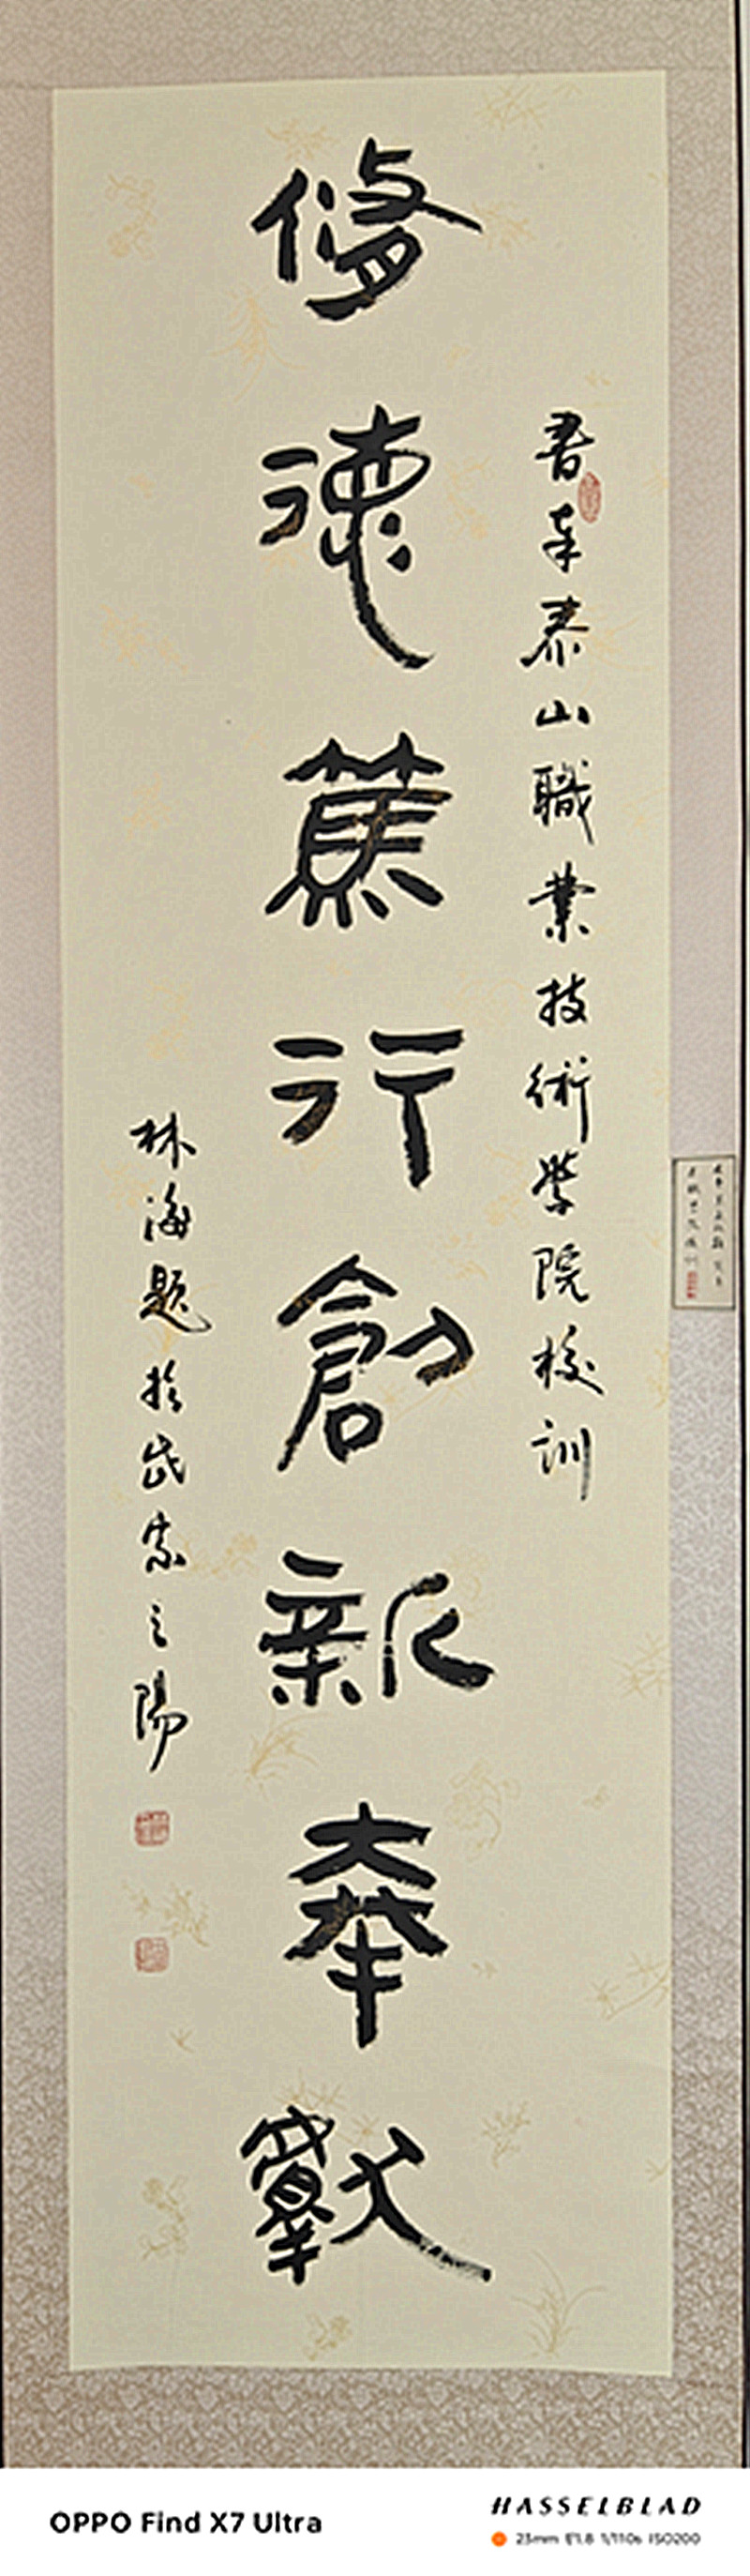 書奉泰山職業技術學院校訓
脩德篤行創新奉獻
林海題於岱宗之陽
OPPO Find X7 Ultra
HASSELBLAD
23mm f/1.8 1/110s ISO200